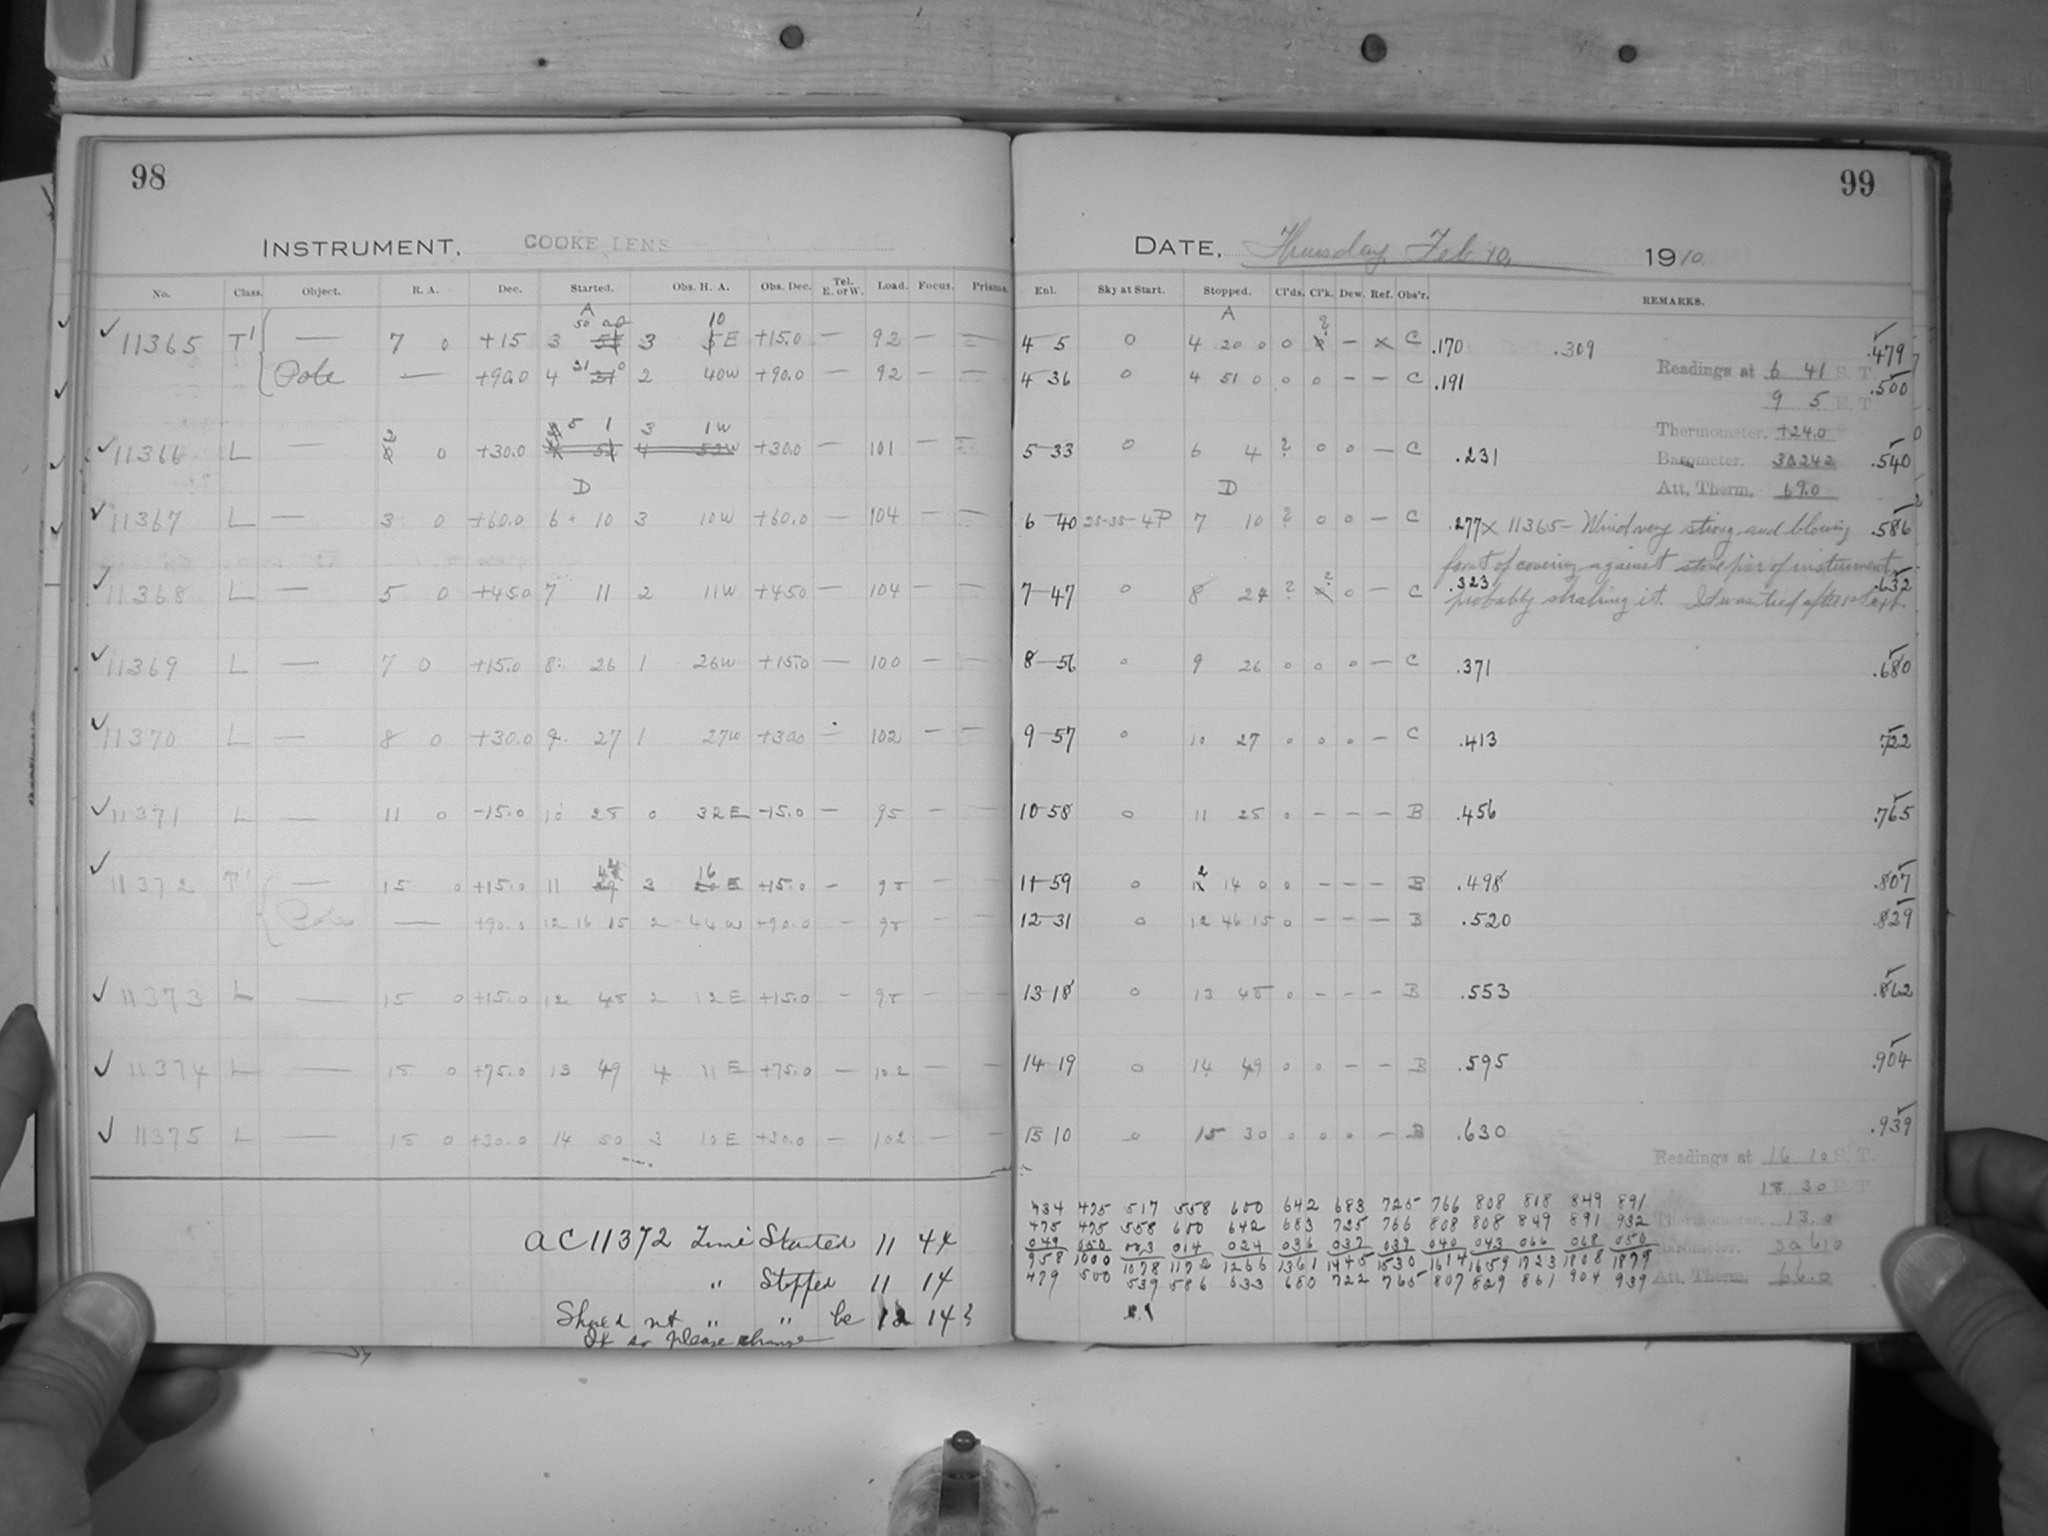 98
INSTRUMENT, COOKE LENS
No. Class. Object. R. A. Dec. Started. Obs. H. A. Obs. Dec. Tel. E. or W. Load. Focus. Prisms.
A
50 10
11365 T' — 7 0 +15 3 3 5 E +15.0 — 92 — —
Pole — +90.0 4 21 0 2 40W +90.0 — 92 — —
5 1 3 1W
11366 L — 0 +30.0 4 52W +30.0 — 101 — —
D
11367 L — 3 0 +60.0 6 10 3 10W +60.0 — 104 — —
11368 L — 5 0 +45.0 7 11 2 11W +45.0 — 104 — —
11369 L — 7 0 +15.0 8 26 1 26W +15.0 — 100 — —
11370 L — 8 0 +30.0 9 27 1 27W +30.0 — 102 — —
11371 L — 11 0 -15.0 10 28 0 32E -15.0 — 95 — —
16
11372 T' — 15 0 +15.0 11 3 E +15.0 - 98 - -
Pole — +90.0 12 16 15 2 44W +90.0 — 98 -
11373 L — 15 0 +15.0 12 48 2 12E +15.0 - 98 - -
11374 L — 18 0 +75.0 13 49 4 11E +75.0 — 102 — —
11375 L — 18 0 +30.0 14 50 3 10E +30.0 — 102 — —
AC11372 Time Started 11 44
" Stopped 11 14
Should not " " be 12 14?
If so please change
99
DATE, Thursday Feb 10, 1910.
Enl. Sky at Start. Stopped. Cl'ds. Cl'k. Dew. Ref. Obs'r. REMARKS.
A ?
4 5 0 4 20 0 0 - x C .170 .309 .479
Readings at 6 41 S. T.
4 36 0 4 51 0 0 0 - - C .191 .500
9 5 E. T.
Thermometer. +24.0
5 33 0 6 4 ? 0 0 - C .231 .540
Barometer. 30.242
Att. Therm. 69.0
D
6 40 28-38-4P 7 10 ? 0 0 - C .277 x 11365 - Wind very strong and blowing .586
front of covering against stone pier of instrument
7-47 0 8 24 ? ? 0 - C .323 .632
probably shaking it. It was tied after 1st exp.
8-56 0 9 26 0 0 0 - C .371 .680
9-57 0 10 27 0 0 0 - C .413 .722
10-58 0 11 28 0 - - - B .456 .765
11-59 0 2 14 0 0 - - - B .498 .807
12-31 0 12 46 15 0 - - - B .520 .829
13-18 0 13 48 0 - - - B .553 .862
14-19 0 14 49 0 0 - - B .595 .904
15 10 0 15 30 0 0 0 - B .630 .939
Readings at 16 10 S. T.
18 30 E. T.
434 475 517 558 600 642 683 725 766 808 818 849 891
475 475 558 600 642 683 725 766 808 808 849 891 932
Thermometer. 13.0
049 050 003 014 024 036 037 039 040 043 066 068 056
Barometer. 30.610
958 1000 1078 1172 1266 1361 1445 1530 1614 1659 1723 1808 1879
479 500 539 586 633 680 722 765 807 829 861 904 939
Att. Therm. 66.0